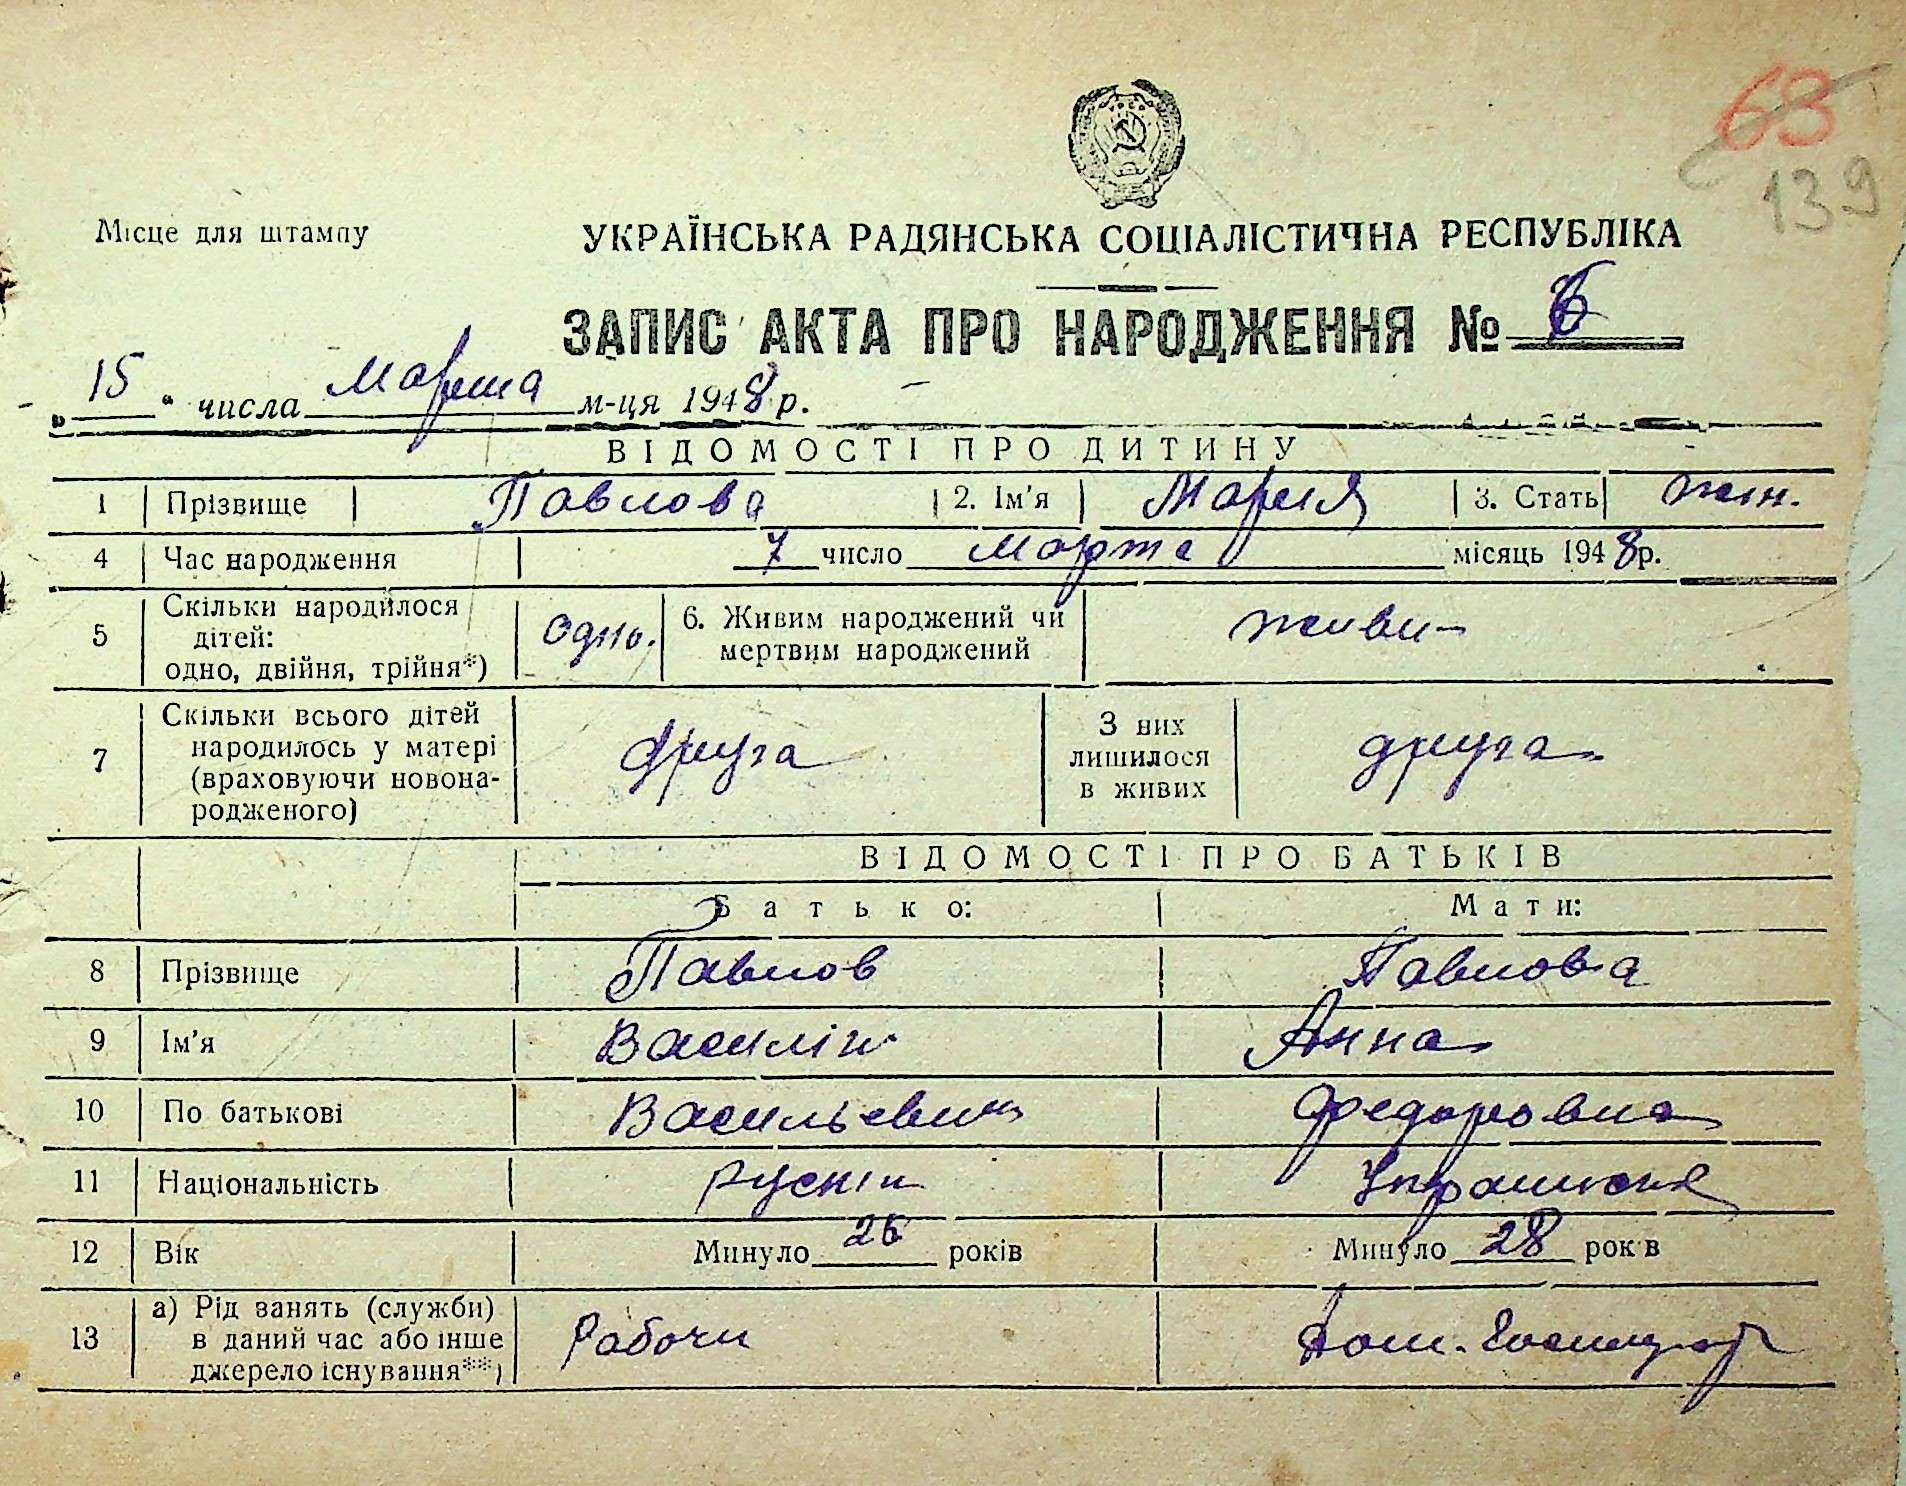 63
139
Місце для штампу
УКРАЇНСЬКА РАДЯНСЬКА СОЦІАЛІСТИЧНА РЕСПУБЛІКА
ЗАПИС АКТА ПРО НАРОДЖЕННЯ № 6
„15“ числа Марта м-ця 1948 р.
ВІДОМОСТІ ПРО ДИТИНУ
1 Прізвище Павлова 2. Ім'я Мария 3. Стать жен.
4 Час народження 7 число Марта місяць 1948 р.
5 Скільки народилося дітей: одно, двійня, трійня*) Одно. 6. Живим народжений чи мертвим народжений живи
7 Скільки всього дітей народилось у матері (враховуючи новонародженого) друга З них лишилося в живих друга
ВІДОМОСТІ ПРО БАТЬКІВ
Батько: Мати:
8 Прізвище Павлов Павлова
9 Ім'я Василій Анна
10 По батькові Васильевич Федоровна
11 Національність рускій
12 Вік Минуло 26 років Минуло 28 рок в
13 а) Рід занять (служби) в даний час або інше джерело існування**) Рабочи Дом.